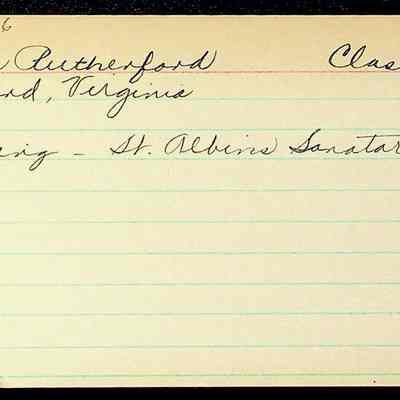 6
Rutherford Clas
rd, Virginia
ing - St. Albins Sanatar